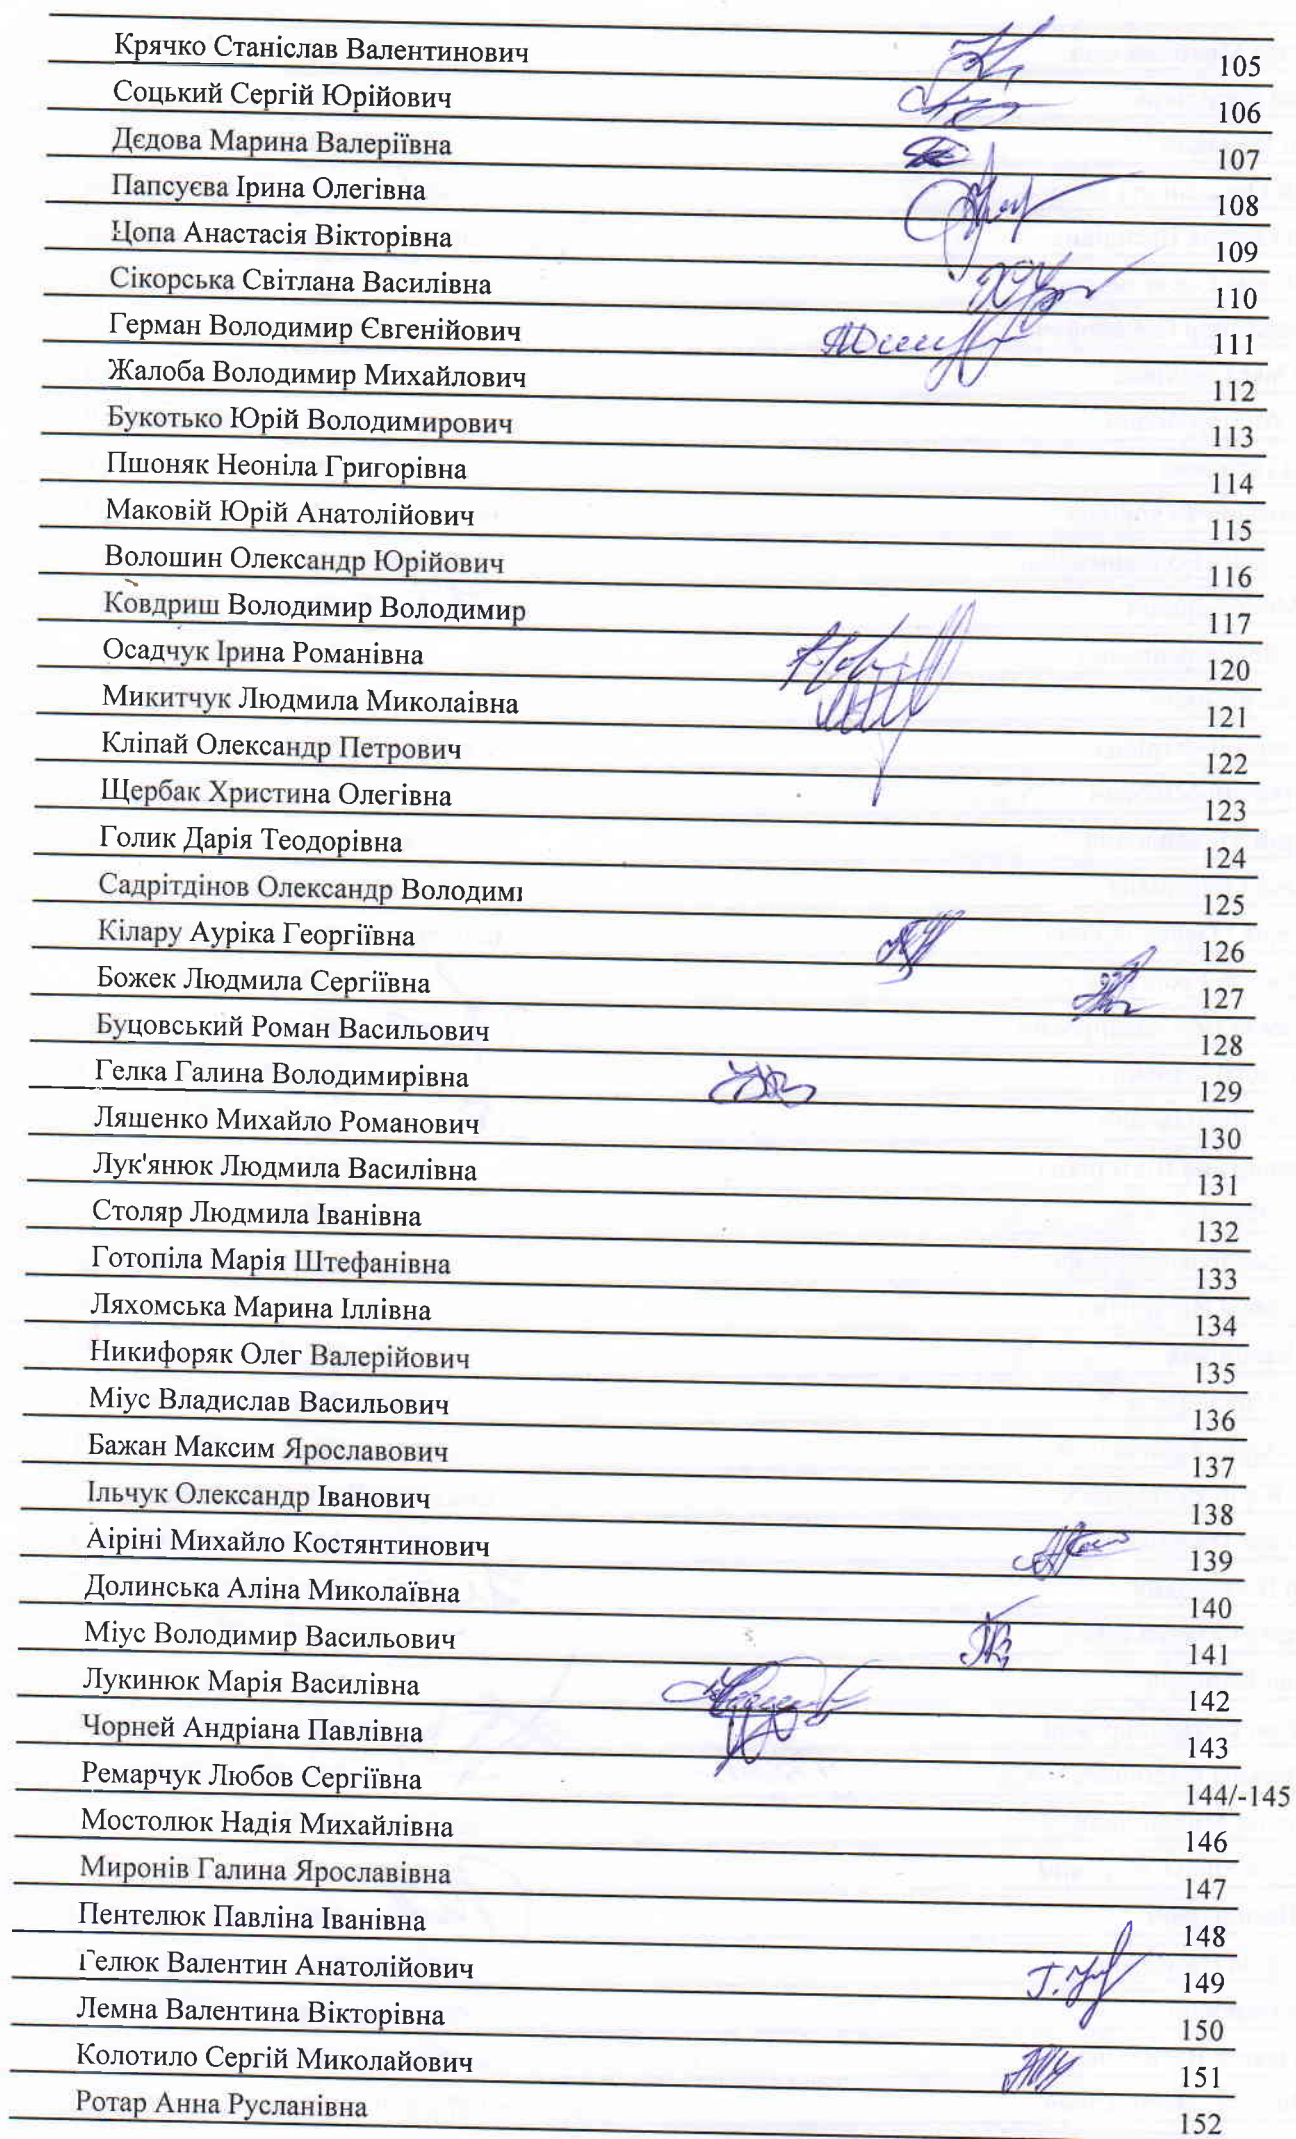 Крячко Станіслав Валентинович 105
Соцький Сергій Юрійович 106
Дєдова Марина Валеріївна 107
Папсуєва Ірина Олегівна 108
Цопа Анастасія Вікторівна 109
Сікорська Світлана Василівна 110
Герман Володимир Євгенійович 111
Жалоба Володимир Михайлович 112
Букотько Юрій Володимирович 113
Пшоняк Неоніла Григорівна 114
Маковій Юрій Анатолійович 115
Волошин Олександр Юрійович 116
Ковдриш Володимир Володимир 117
Осадчук Ірина Романівна 120
Микитчук Людмила Миколаівна 121
Кліпай Олександр Петрович 122
Щербак Христина Олегівна 123
Голик Дарія Теодорівна 124
Садрітдінов Олександр Володими 125
Кілару Ауріка Георгіївна 126
Божек Людмила Сергіївна 127
Буцовський Роман Васильович 128
Гелка Галина Володимирівна 129
Ляшенко Михайло Романович 130
Лук'янюк Людмила Василівна 131
Столяр Людмила Іванівна 132
Готопіла Марія Штефанівна 133
Ляхомська Марина Іллівна 134
Никифоряк Олег Валерійович 135
Міус Владислав Васильович 136
Бажан Максим Ярославович 137
Ільчук Олександр Іванович 138
Аіріні Михайло Костянтинович 139
Долинська Аліна Миколаївна 140
Міус Володимир Васильович 141
Лукинюк Марія Василівна 142
Чорней Андріана Павлівна 143
Ремарчук Любов Сергіївна 144/-145
Мостолюк Надія Михайлівна 146
Миронів Галина Ярославівна 147
Пентелюк Павліна Іванівна 148
Гелюк Валентин Анатолійович 149
Лемна Валентина Вікторівна 150
Колотило Сергій Миколайович 151
Ротар Анна Русланівна 152